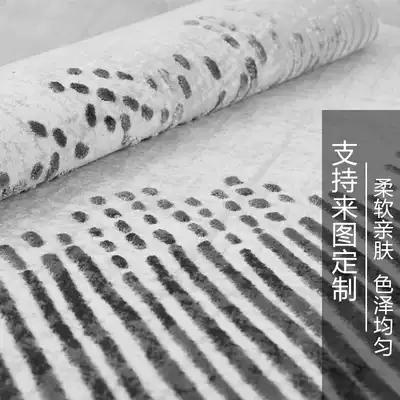 支持来图定制
柔软亲肤 色泽均匀